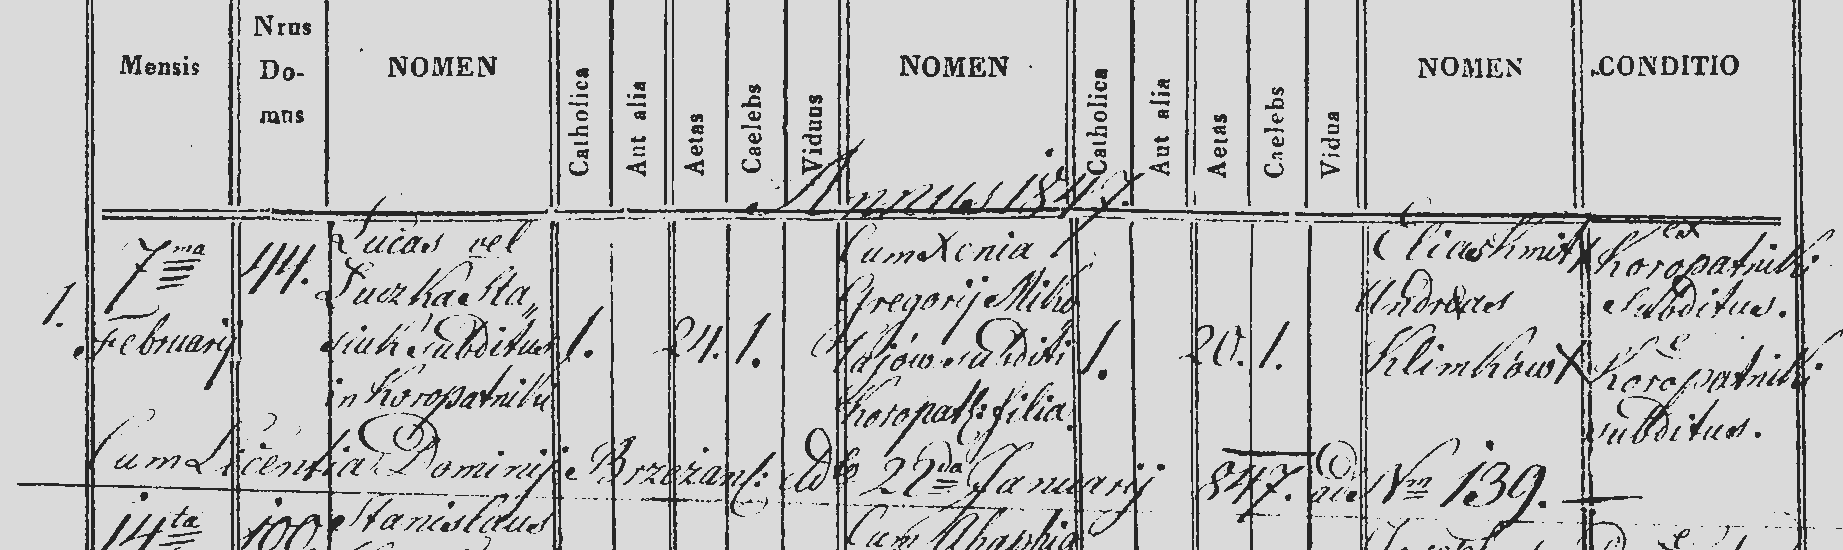 Mensis
Nrus
Do-
mus
NOMEN
Catholica
Aut alia
Aetas
Caelebs
Viduus
NOMEN
Catholica
Aut alia
Aetas
Caelebs
Vidua
NOMEN
CONDITIO
Annus 1847.
1.
7ma
Februarij
44.
Lucas vel
Luczka Sta
siuk Subditus
in Koropatniki
1.
24.
1.
Cum Xenia
Gregorij Miko
łajów subditi
Koropat: filia
1.
20.
1.
Elias Kmit X
Andreas
Klimków X
ex
Koropatniki
subditus.
e
Koropatniki
subditus.
Cum Licentia Dominij Brzezan: ddto 22da Januarij 847. Nm 139.
14ta
100
Stanislaus
Cum